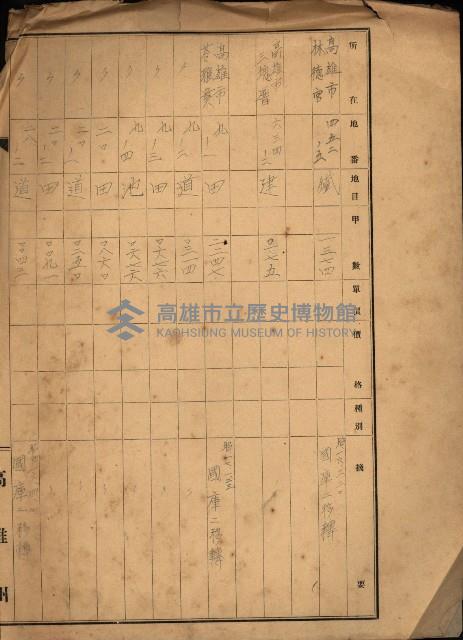 所在地 番 地目 甲數 單價 價格 種別 摘要
高雄市
林德官 四五二ノ五 鐵 一三七四 國庫ニ移轉
高雄市
三塊厝 六三四ノ二 建 〇一七五
高雄市
苓雅寮 九ノ一 田 二二四七 國庫ニ移轉
〃 九ノ二 道 〇三一四
〃 九ノ三 田 〇六六六
〃 九ノ四 池
〃 二〇 田 〇八六〇
道 〇一五〇
田 〇〇九一
〃 道 〇〇四三 國庫ニ移轉
高雄州
高雄市立歷史博物館
KAOHSIUNG MUSEUM OF HISTORY